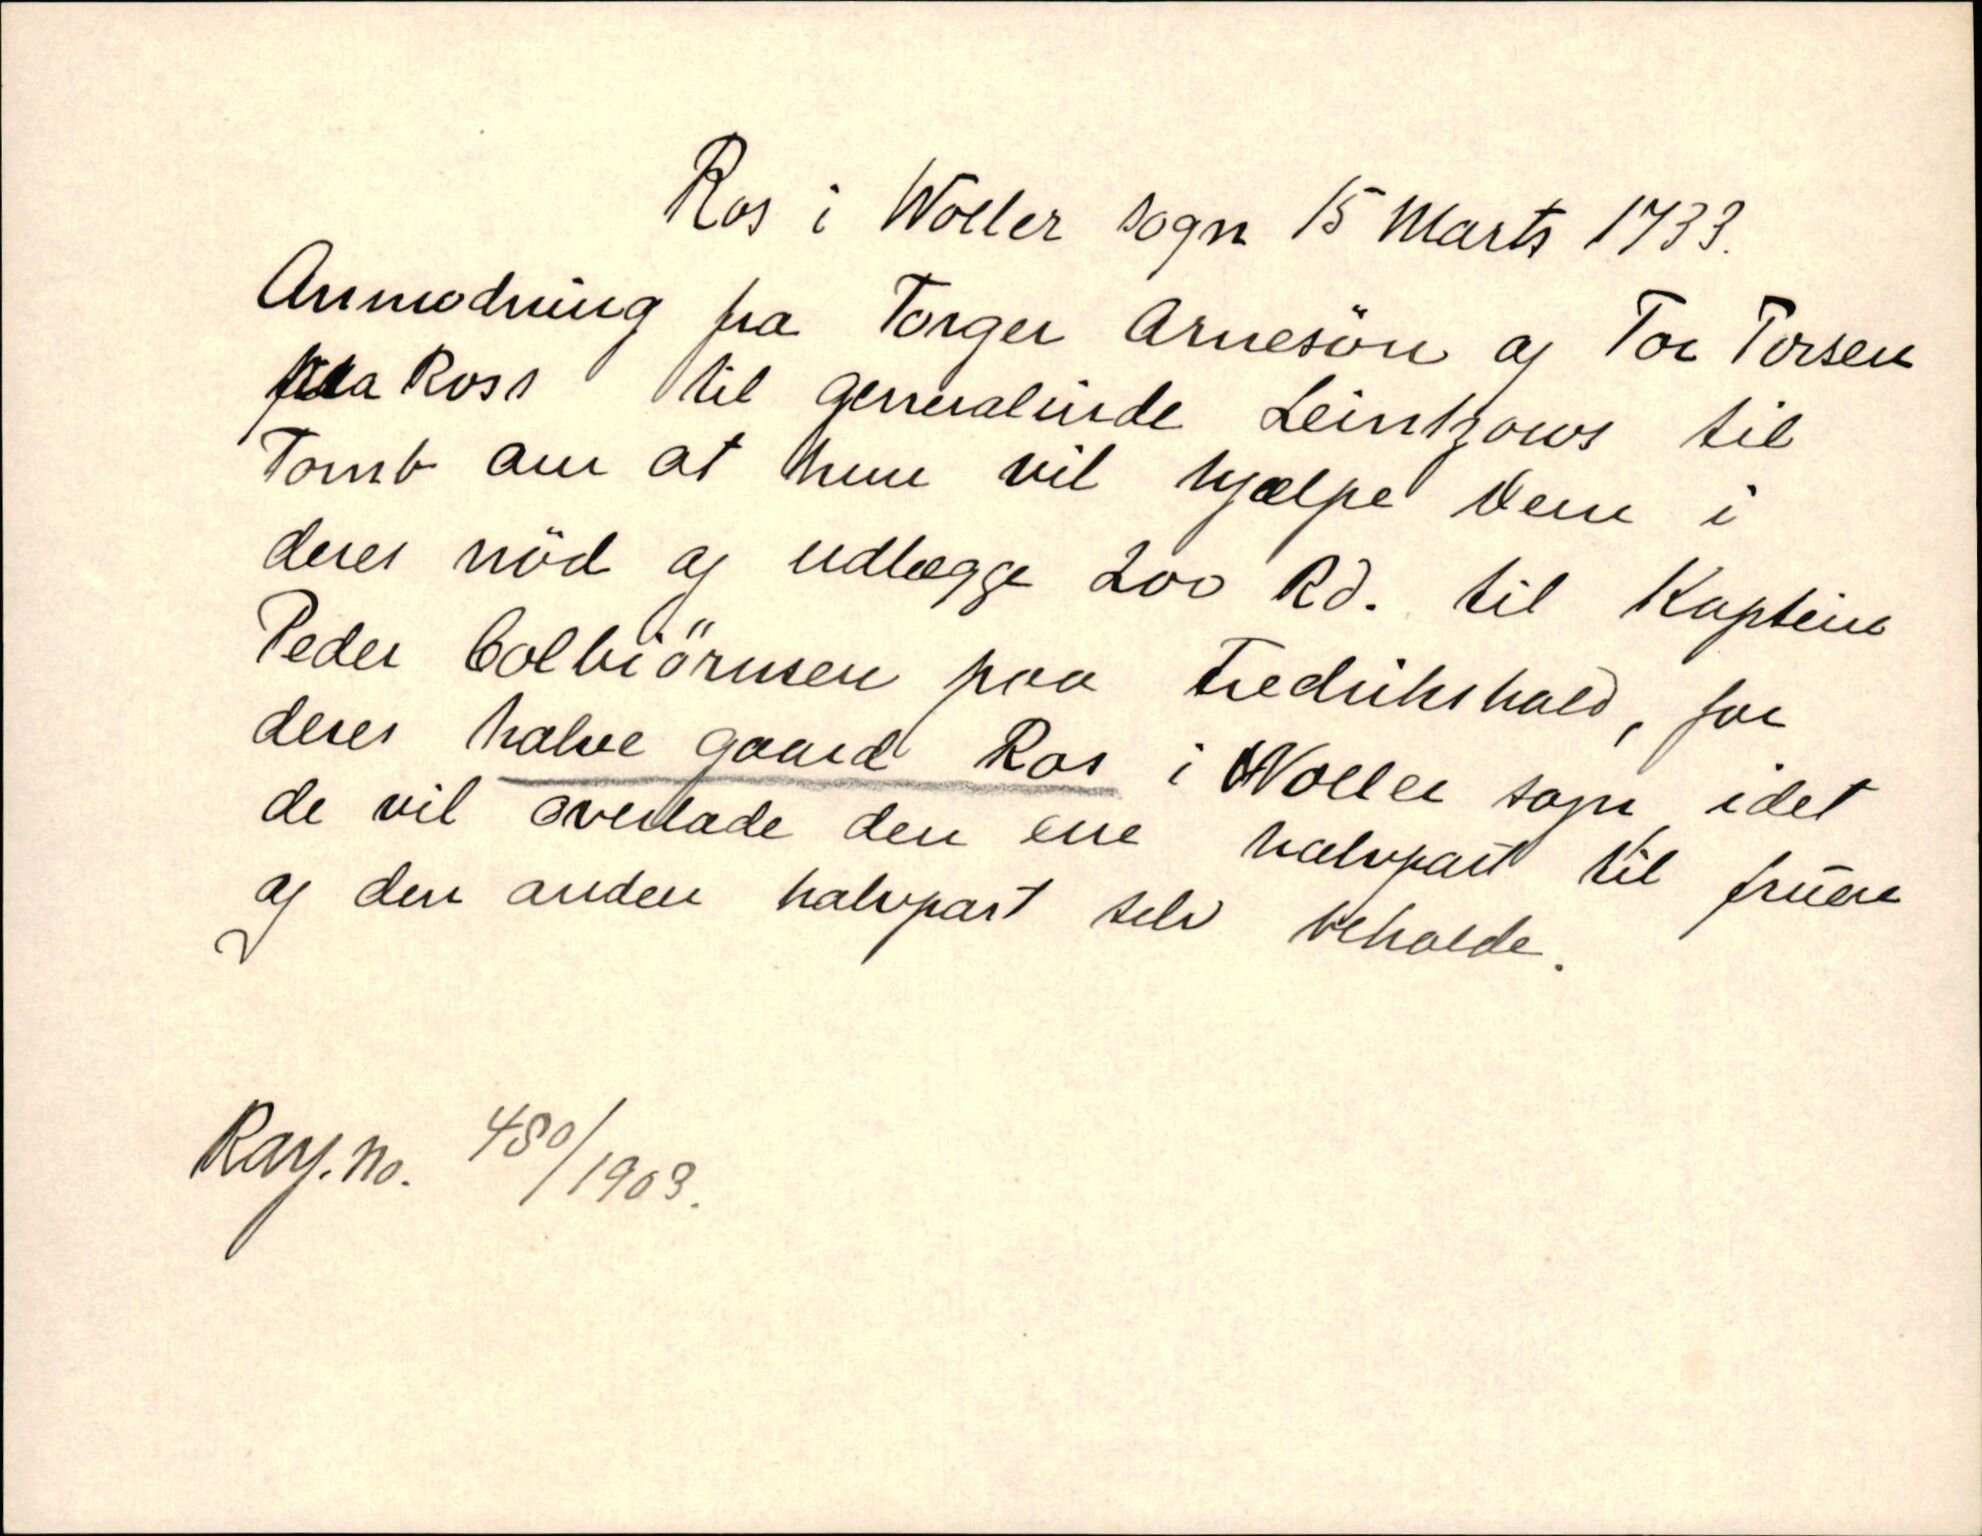 Ros i Woller sogn 15 Marts 1733.
Anmodning fra Torger Arnesön og Tor Torsen
paa Ross til generalinde Leintzows til
Tomb om at hun vil hjælpe dem i
deres nöd og udlægge 200 Rd. til Kaptein
Peder Colbiörnsen paa Fredrikshald, for
deres halve gaard Ros i Woller sogn idet
de vil overlade den ene halvpart til fruen
og den anden halvpart selv beholde.
Ray. No. 480/1903.